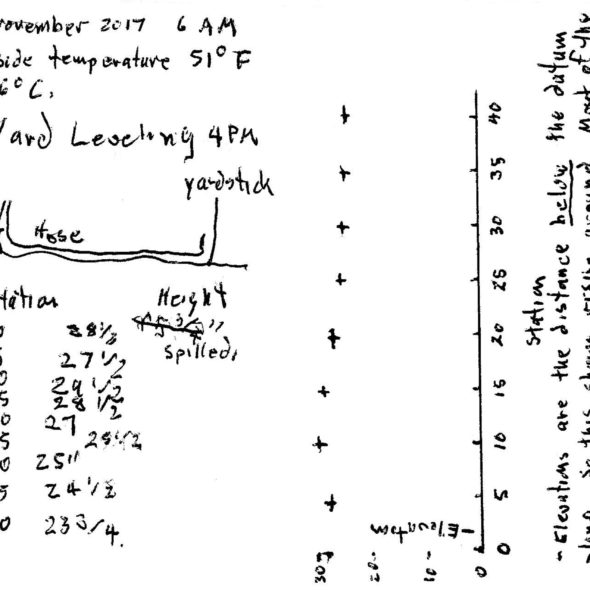 November 2017 6 AM
side temperature 51° F
6° C.
Yard Leveling 4 PM
yardstick
Hose
Station Height
0 28 1/2
5 27 1/2 Spilled.
0 29 1/2
5 28 1/2
0 27
5 25 1/2
0 25"
5 24 1/2
0 23 3/4.
40
35
30
25
20
15
10
5
0
Station
Elevation
30
20
10
0
- Elevations are the distance below the datum
so this shows rising ground Most of the